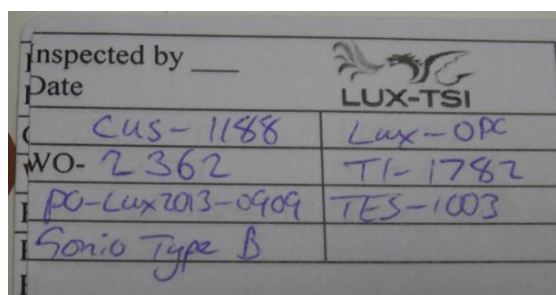 Inspected by ___
Date
LUX-TSI
CUS-1188 Lux-OPC
WO-2362 TI-1782
PO-Lux2013-0909 TES-1003
Sonio Type B